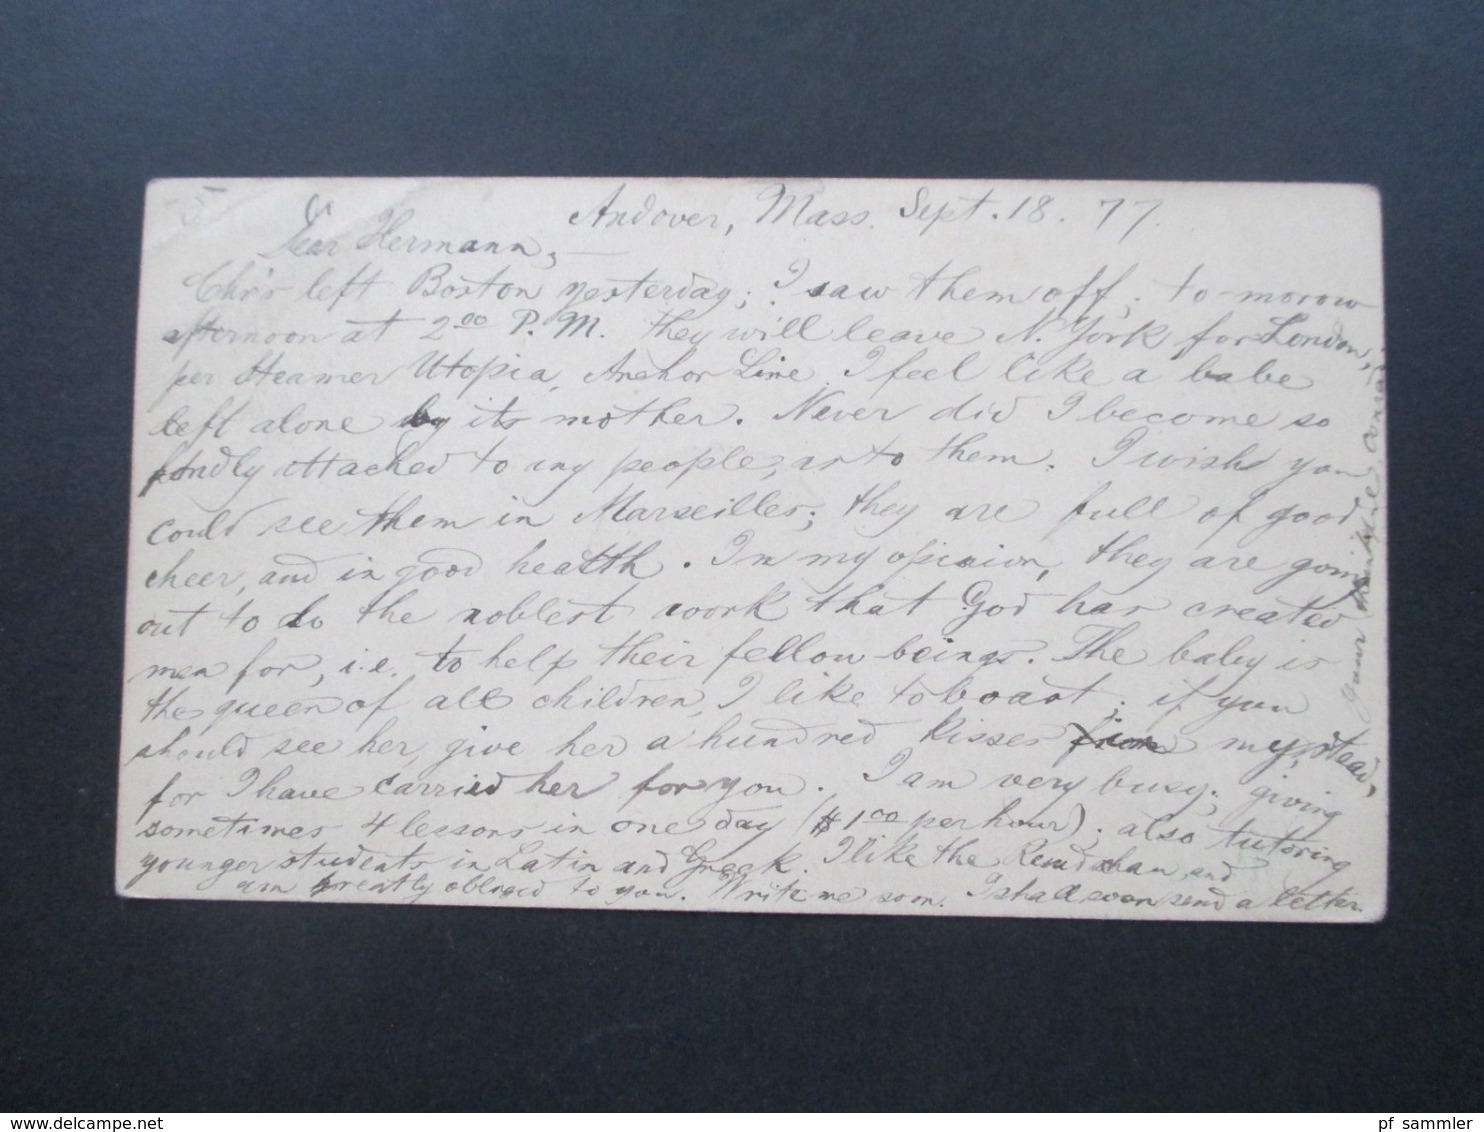 Andover, Mass. Sept. 18. 77.
Dear Hermann, —
Chr's left Boston yesterday; I saw them off; to-morow
afternoon at 2 00 P. M. they will leave N. York for London,
per steamer Utopia, Anchor Line. I feel like a babe
left alone by its mother. Never did I become so
fondly attached to my people, as to them. I wish you
could see them in Marseilles; they are full of good
cheer, and in good health. In my opinion, they are going
out to do the noblest work that God has created
men for, i.e. to help their fellow beings. The baby is
the queen of all children, I like to boast; if you
should see her, give her a hundred kisses in my stead,
for I have carried her for you. I am very busy; giving
sometimes 4 lessons in one day ($1 00 per hour); also tutoring
younger students in Latin and Greek. I like the and
am greatly obliged to you. Write me soon. I shall soon send a letter.
Your
delcampe.net
pf_sammler